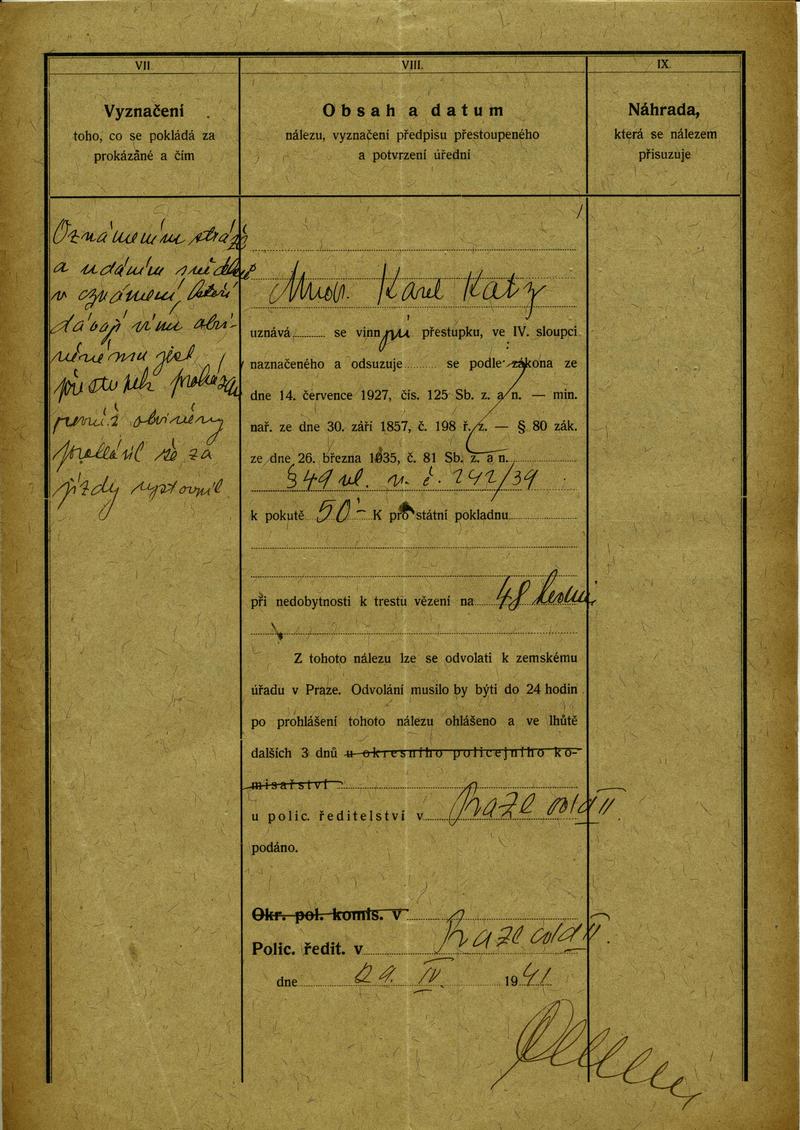 VII.
Vyznačení
toho, co se pokládá za
prokázané a čím
Oznámením stráže
a udáním svědků
v oznámení, kteří
jízdy
VIII.
Obsah a datum
nálezu, vyznačení předpisu přestoupeného
a potvrzení úřední
Mudr. Karel Katz
uznává se vinným přestupku, ve IV. sloupci
naznačeného a odsuzuje se podle zákona ze
dne 14. července 1927, čís. 125 Sb. z. a n. — min.
nař. ze dne 30. září 1857, č. 198 ř. z. — § 80 zák.
ze dne 26. března 1935, č. 81 Sb. z. a n.
§ 49 vl. n. č. 242/39
k pokutě 50·- K pro státní pokladnu
při nedobytnosti k trestu vězení na 48 hodin
Z tohoto nálezu lze se odvolati k zemskému
úřadu v Praze. Odvolání musilo by býti do 24 hodin
po prohlášení tohoto nálezu ohlášeno a ve lhůtě
dalších 3 dnů u okresního policejního ko-
misařství
u polic. ředitelství v Praze odd II
podáno.
Okr. pol. komis. v
Polic. ředit. v Praze odd II.
dne 29. IV. 1941
IX.
Náhrada,
která se nálezem
přisuzuje